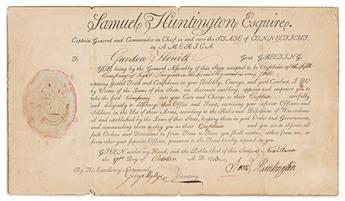 Samuel Huntington Esquire,
Captain General and Commander in Chief in and over the STATE of CONNECTICUT,
in AMERICA.
To Gurdon Howell Gent GREETING.
YOU being by the General Assembly of this State accepted to be Captain of the
Company of Light Dragoons in the Regiment in said State
reposing special Trust and Confidence in your Fidelity, Courage, and good Conduct, I DO
by Virtue of the Laws of this State, me thereunto enabling, appoint and impower you to
take the said Company into your Care and Charge as their Captain carefully
and diligently to discharge that Office and Trust, exercising your inferior Officers and
Soldiers in the Use of their Arms, according to the Rules and Discipline of War,
and established by the Laws of this State, keeping them in good Order and Government,
and commanding them to obey you as their Captain and you are to observe
such Orders and Directions as from Time to Time you shall receive, either from me, or
from other your superior Officer, pursuant to the Trust hereby reposed in you.
GIVEN under my Hand, and the Public Seal of this State, at
the Day of October A. D. 17
By His Excellency's Command,
George Wyllys Secretary
Sam Huntington